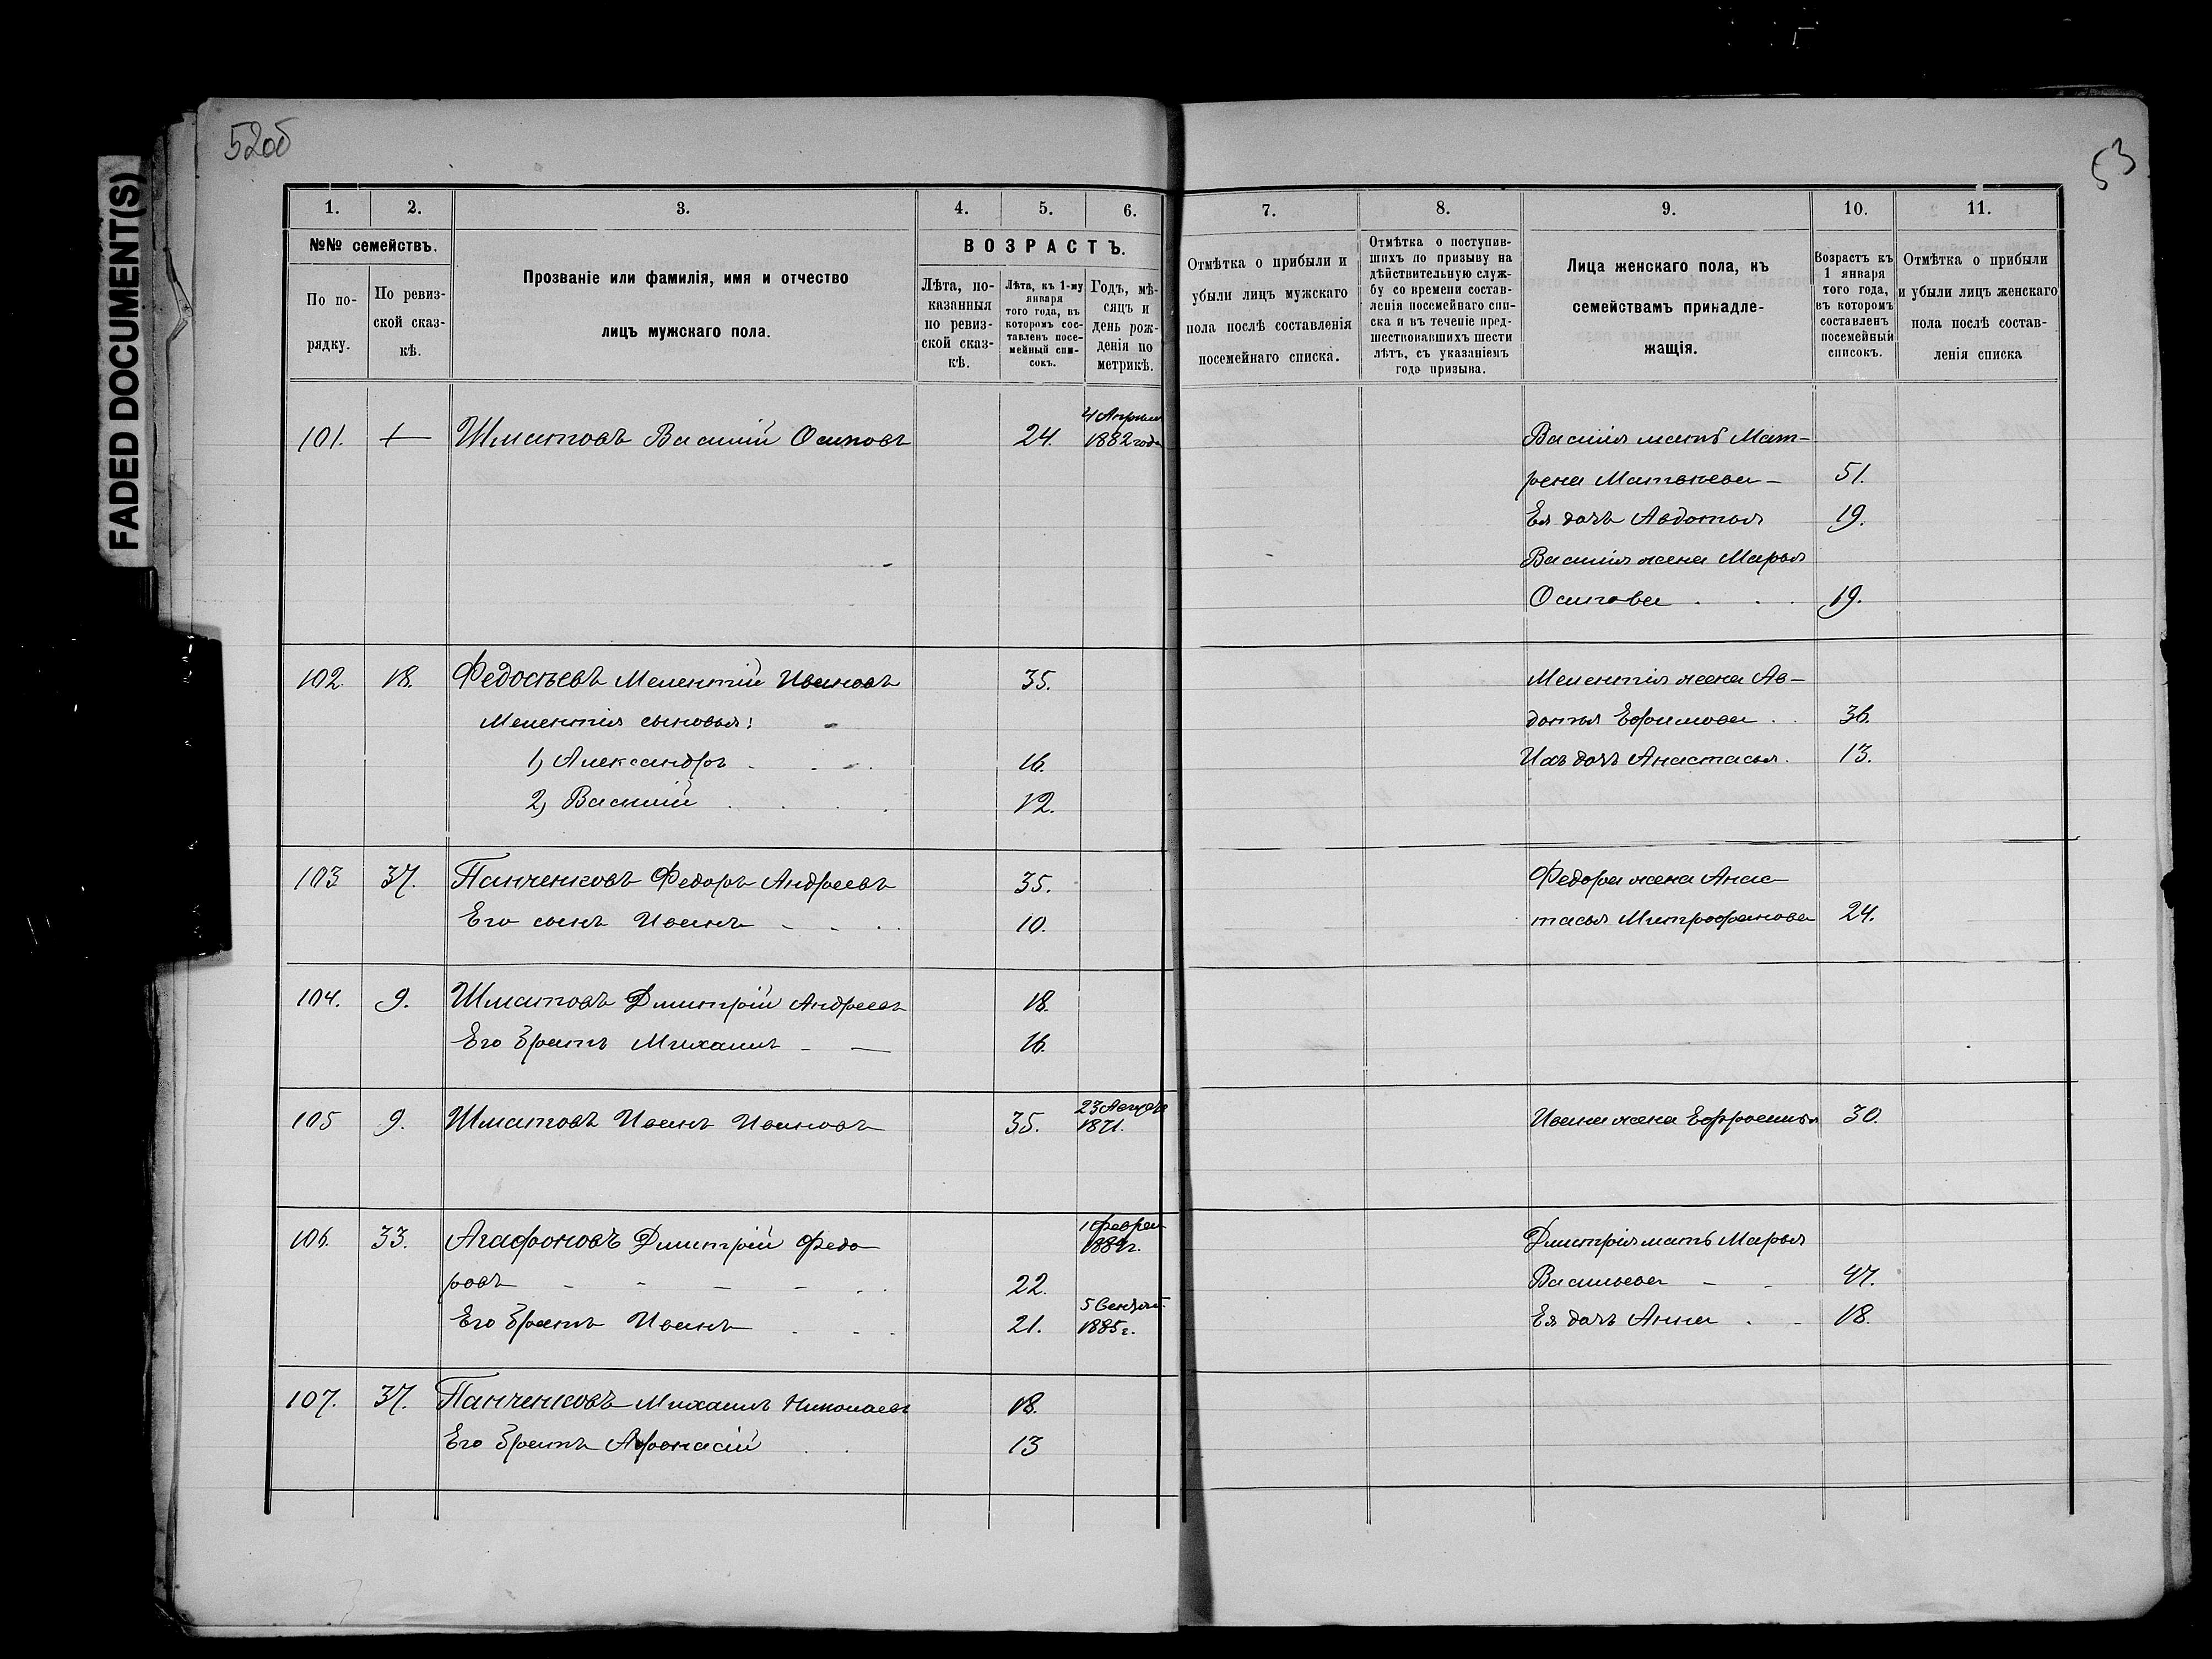 52об
53
FADED DOCUMENT(S)
1. 2. 3. 4. 5. 6. 7. 8. 9. 10. 11.
№№ семействъ.
По по-
рядку.
По ревиз-
ской сказ-
кѣ.
Прозваніе или фамилія, имя и отчество
лицъ мужскаго пола.
ВОЗРАСТЪ.
Лѣта, по-
казанныя
по ревиз-
ской сказ-
кѣ.
Лѣта, къ 1-му
января
того года, въ
которомъ сос-
тавленъ посе-
мейный спи-
сокъ.
Годъ, мѣ-
сяцъ и
день рож-
денія по
метрикѣ.
Отмѣтка о прибыли и
убыли лицъ мужскаго
пола послѣ составленія
посемейнаго списка.
Отмѣтка о поступив-
шихъ по призыву на
дѣйствительную служ-
бу со времени состав-
ленія посемейнаго спи-
ска и въ теченіе пред-
шествовавшихъ шести
лѣтъ, съ указаніемъ
года призыва.
Лица женскаго пола, къ
семействамъ принадле-
жащія.
Возрастъ къ
1 января
того года,
въ которомъ
составленъ
посемейный
списокъ.
Отмѣтка о прибыли
и убыли лицъ женскаго
пола послѣ состав-
ленія списка
4 Апрѣля
101. + Шматовъ Василій Осиповъ 24. 1882 года Василія мать Мат-
рена Матвѣева - 51.
Ея дочь Авдотья 19.
Василія жена Марья
Осипова 19.
102. 18. Федосѣевъ Мелентій Ивановъ 35. Мелентія жена Ав-
Мелентія сыновья: дотья Ефимова 36.
1) Александръ 16. Ихъ дочь Анастасья 13.
2) Василій 12.
103 37. Панченковъ Федоръ Андреевъ 35. Федора жена Анас-
Его сынъ Иванъ 10. тасья Митрофанова 24.
104. 9. Шматовъ Дмитрій Андреевъ 18.
Его братъ Михаилъ 16.
23 Августа
105 9. Шматовъ Иванъ Ивановъ 35. 1871. Ивана жена Ефросинья 30.
1 Феврал
106. 33. Агафоновъ Дмитрій Федо- 1884г. Дмитрія мать Марья
ровъ 22. Васильева 47.
5 Сентяб.
Его братъ Иванъ 21. 1885г. Ея дочь Анна 18.
107. 37. Панченковъ Михаилъ Николаевъ 18.
Его братъ Афонасій 13